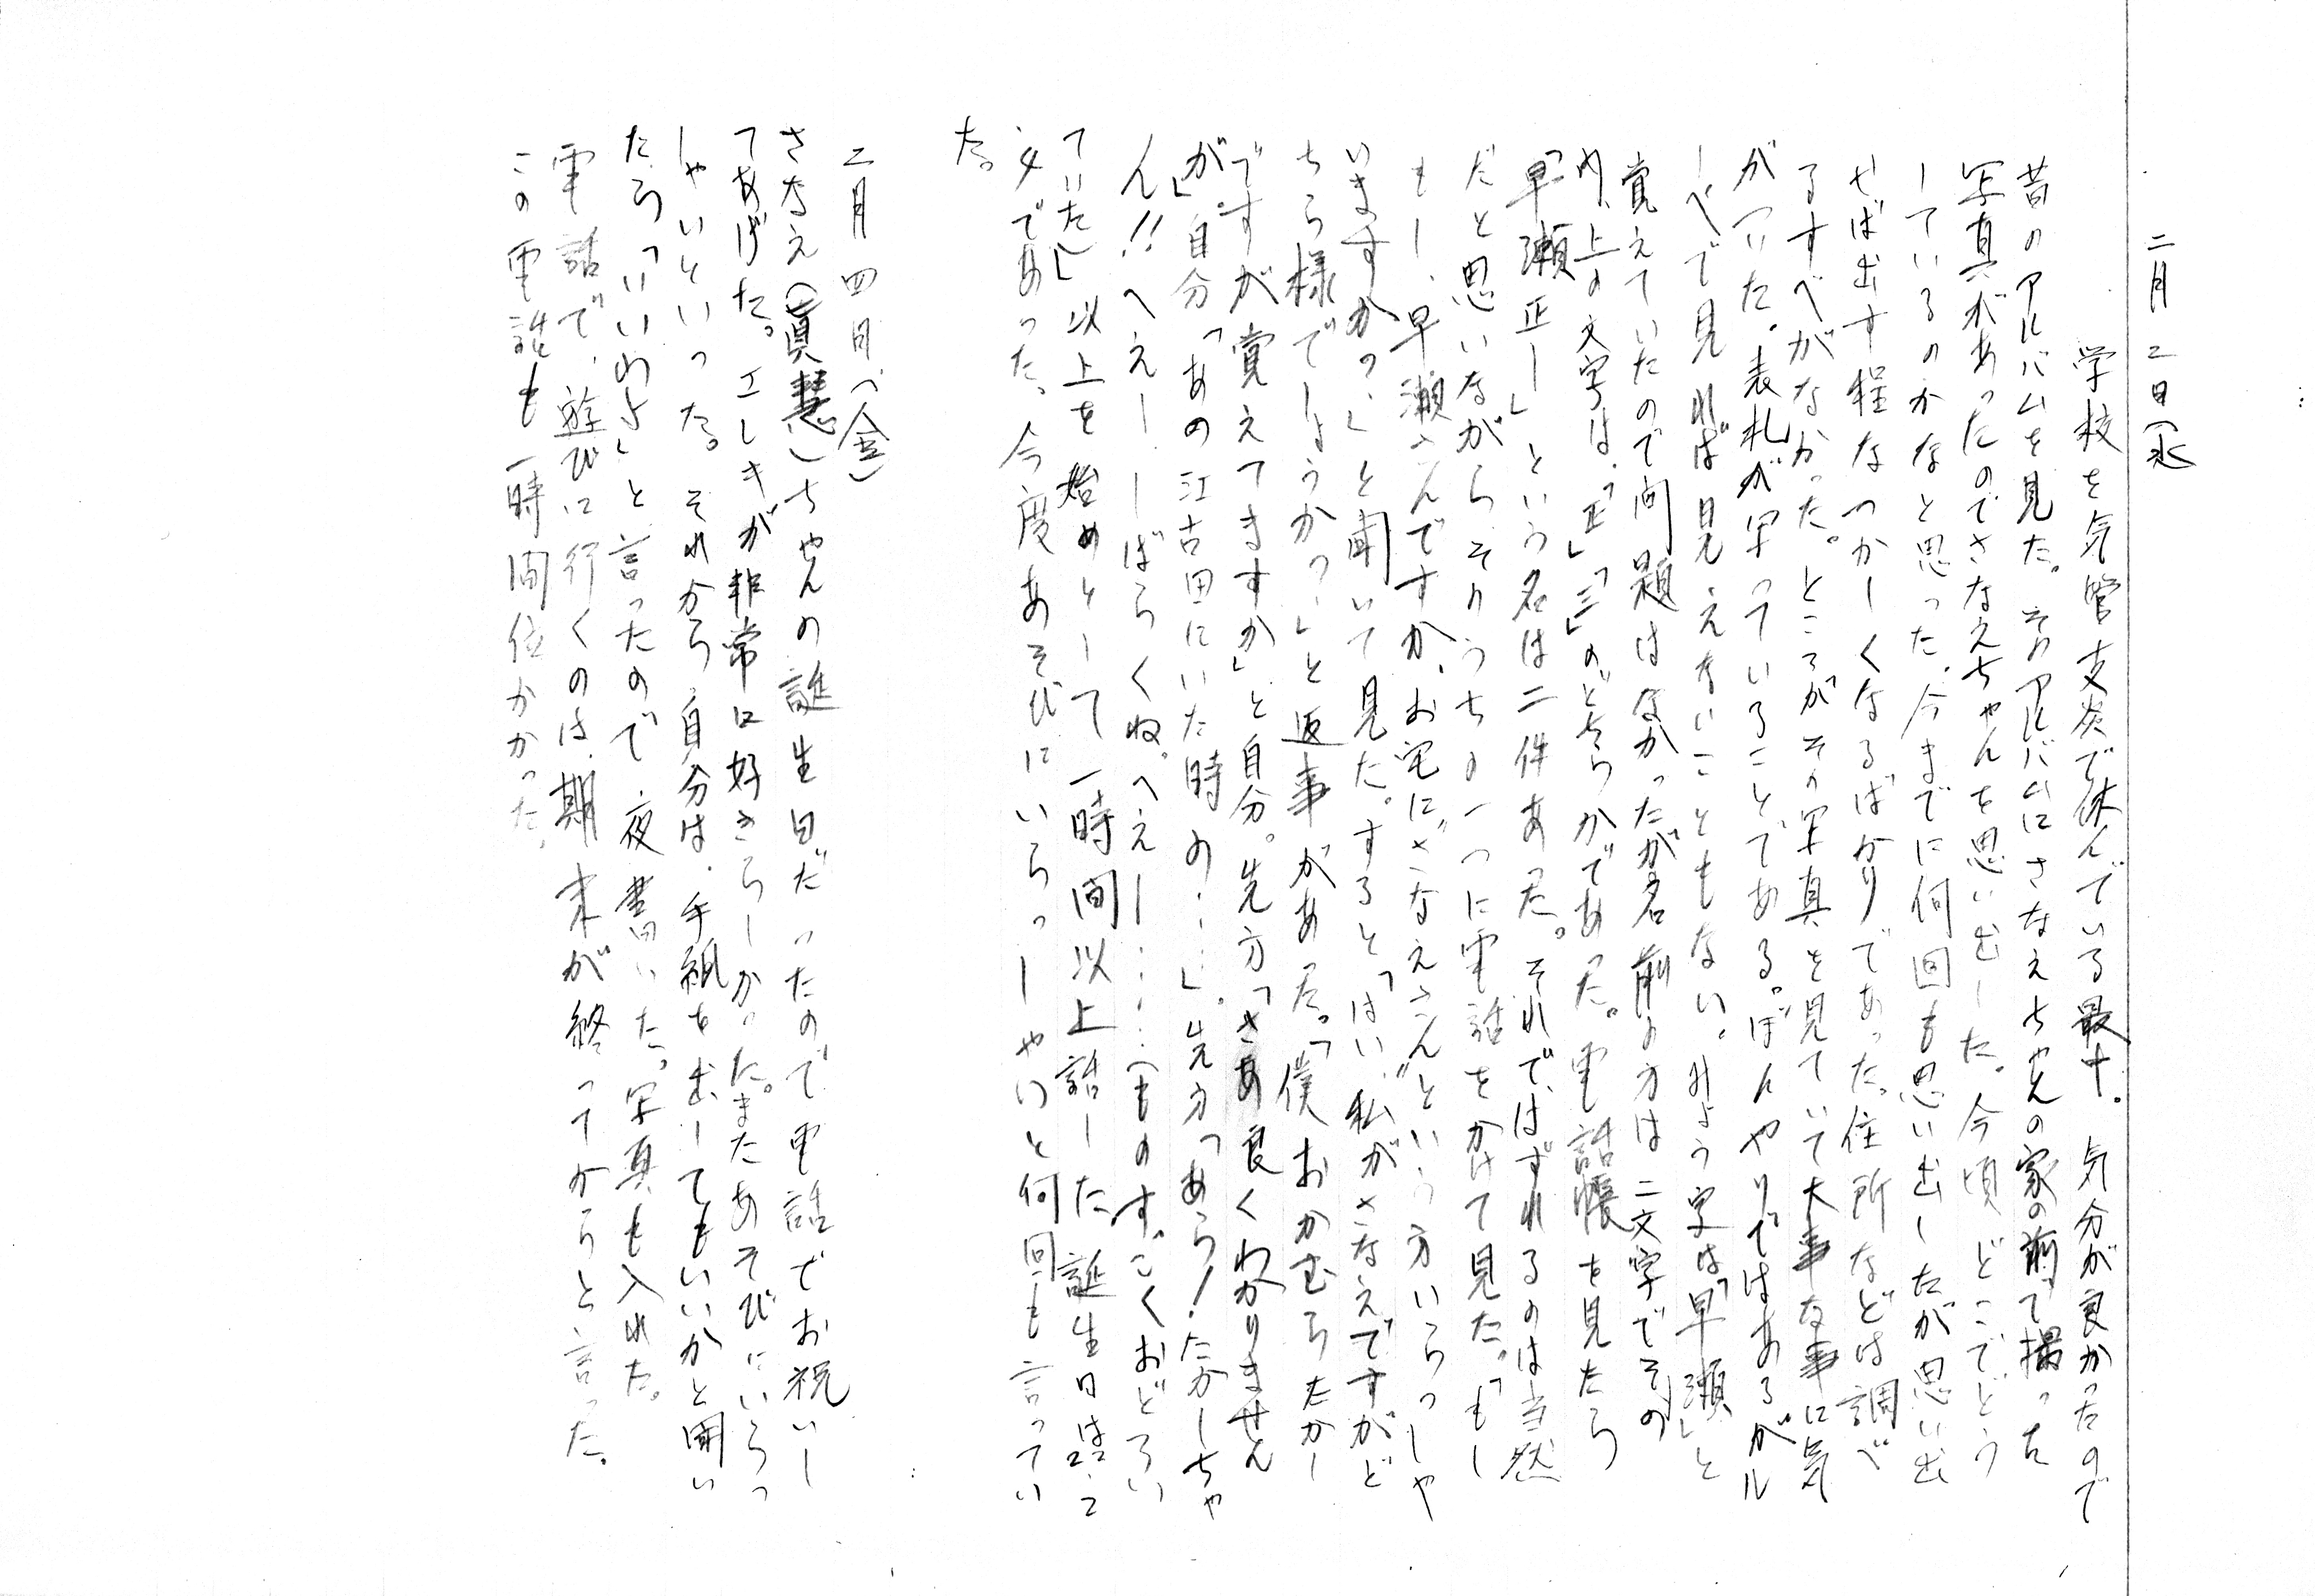 二月二日(水)
学校を気管支炎で休んでいる最中。気分が良かったので
昔のアルバムを見た。そのアルバムにさなえちゃんの家の前で撮った
写真があったのでさなえちゃんを思い出した。今頃どこでどう
しているのかなと思った。今までに何回も思い出したが思い出
せば出す程なつかしくなるばかりであった。住所などは調べ
るすべがなかった。ところがその写真を見ていて大事な事に気
がついた。表札が写っていることである。ぼんやりではあるがル
ーペで見れば見えないこともない。みょう字は「早瀬」と
覚えていたので問題はなかったが名前の方は二文字でその
内、上の文字は、「正」「三」のどちらかであった。電話帳を見たら
「早瀬正一」という名は二件あった。それで、はずれるのは当然
だと思いながら、そのうちの一つに電話をかけて見た。「もし
もし、早瀬さんですか、お宅に"さなえさん"という方いらっしゃ
いますか?」と聞いて見た。すると「はい、私がさなえですがど
ちら様でしょうか?」と返事があった。「僕おかむらたかし
ですが覚えてますか」と自分。先方「さあ良くわかりません
が」。自分「あの江古田にいた時の……」。先方「あら!たかしちゃ
ん!!へえーしばらくね。へえー……(ものすごくおどろい
ていた)」以上を始めとして一時間以上話した。誕生日は2.2
4であった。今度あそびにいらっしゃいと何回も言ってい
た。
二月四日(金)
さなえ(真慧)ちゃんの誕生日だったので電話でお祝いし
てあげた。エレキが非常に好きらしかった。またあそびにいらっ
しゃいといった。それから自分は、手紙を出してもいいかと聞い
たら「いいわよ」と言ったので、夜書いた。写真も入れた。
電話で、遊びに行くのは、期末が終ってからと言った。
この電話も一時間位かかった。